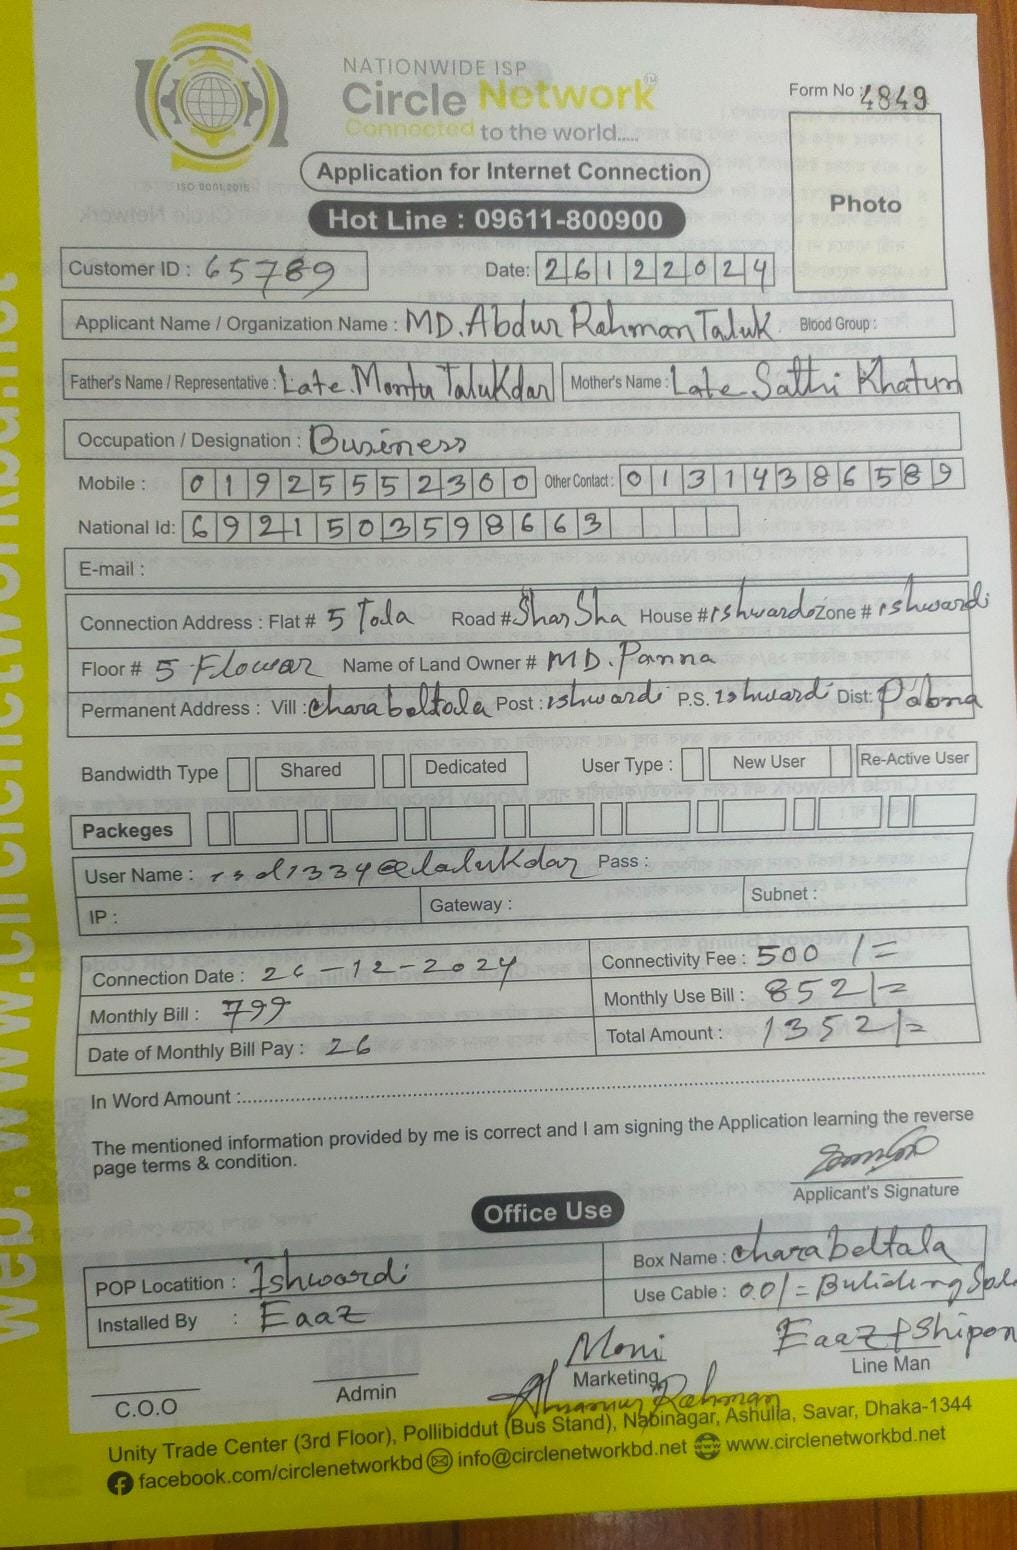 NATIONWIDE ISP
Circle Network TM
Connected to the world.....
ISO 9001:2015
Form No : 4849
Application for Internet Connection
Photo
Hot Line : 09611-800900
Customer ID : 65789 Date: 26122024
Applicant Name / Organization Name : MD. Abdur Rahman Taluk Blood Group :
Father's Name / Representative : Late. Montu Talukdar Mother's Name : Late Sathi Khatun
Occupation / Designation : Business
Mobile : 01925552300 Other Contact : 01314386589
National Id: 6921503598663
E-mail :
Connection Address : Flat # 5 Tala Road # Shar Sha House # ishwardi Zone # ishwardi
Floor # 5 Flowar Name of Land Owner # MD. Panna
Permanent Address : Vill : charabeltala Post : ishwardi P.S. ishwardi Dist: Pabna
Bandwidth Type Shared Dedicated User Type : New User Re-Active User
Packeges
User Name : rsd1334@talukdar Pass :
IP : Gateway : Subnet :
Connection Date : 26-12-2024 Connectivity Fee : 500/=
Monthly Bill : 799 Monthly Use Bill : 852/=
Date of Monthly Bill Pay : 26 Total Amount : 1352/=
In Word Amount :
The mentioned information provided by me is correct and I am signing the Application learning the reverse
page terms & condition.
Applicant's Signature
Office Use
POP Locatition : Ishwardi Box Name : charabeltala
Installed By : Eaaz Use Cable : 001= Buliding
Moni Eaaz & Shipon
C.O.O Admin Marketing Line Man
Rahman
Unity Trade Center (3rd Floor), Pollibiddut (Bus Stand), Nabinagar, Ashulia, Savar, Dhaka-1344
facebook.com/circlenetworkbd info@circlenetworkbd.net www.circlenetworkbd.net
web: www.circlenetworkbd.net